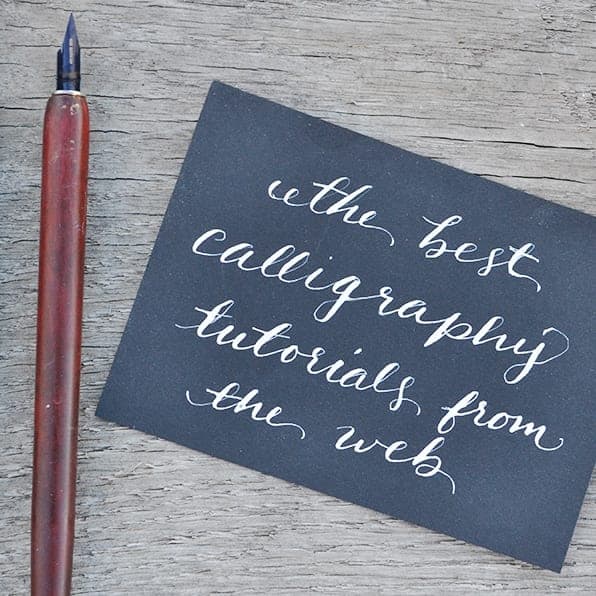 the best
calligraphy
tutorials from
the web